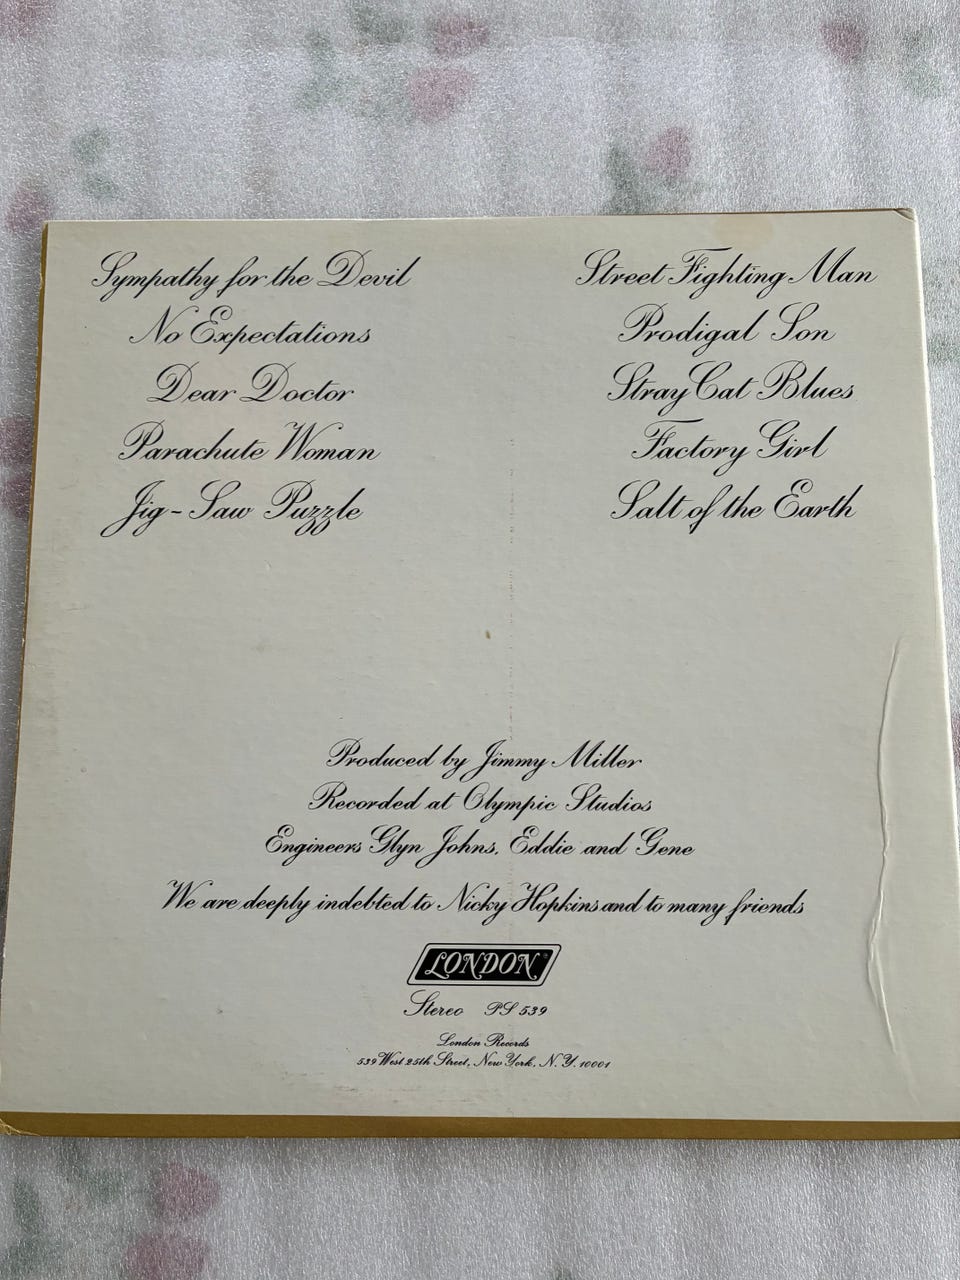 Sympathy for the Devil
No Expectations
Dear Doctor
Parachute Woman
Jig-Saw Puzzle
Street Fighting Man
Prodigal Son
Stray Cat Blues
Factory Girl
Salt of the Earth
Produced by Jimmy Miller
Recorded at Olympic Studios
Engineers Glyn Johns, Eddie and Gene
We are deeply indebted to Nicky Hopkins and to many friends
LONDON
Stereo PS 539
London Records
539 West 25th Street, New York, N. Y. 10001